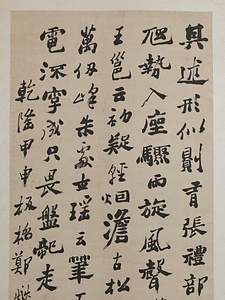 其述形似則有張禮部
虺勢入座驟雨旋風聲
王邕云初疑輕烟澹古松
萬仞峰朱處士瑶云筆
電流字成只畏盤龍走
乾隆甲申板橋鄭燮